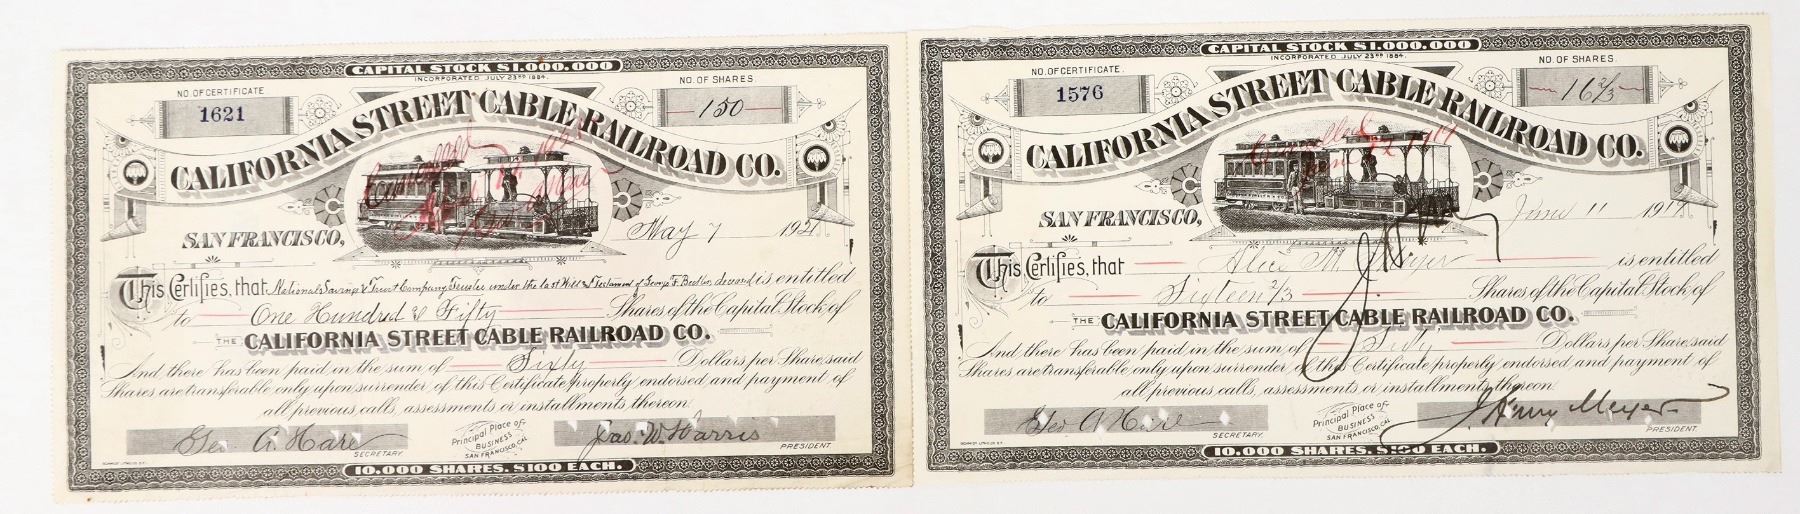 CAPITAL STOCK $1,000,000
INCORPORATED JULY 23RD 1884.
NO. OF CERTIFICATE
1621
NO. OF SHARES
150
CALIFORNIA STREET CABLE RAILROAD CO.
Cancelled
SAN FRANCISCO, May 7 1921
This Certifies, that National Savings & Trust Company Trustee under the last Will & Testament of George F. Becker, deceased is entitled
to One Hundred & Fifty Shares of the Capital Stock of
THE CALIFORNIA STREET CABLE RAILROAD CO.
And there has been paid in the sum of Sixty Dollars per Share, said
Shares are transferable only upon surrender of this Certificate properly endorsed and payment of
all previous calls, assessments or installments thereon.
Geo A. Hare
SECRETARY.
Principal Place of
BUSINESS
SAN FRANCISCO, CAL
Jas. W. Harris
PRESIDENT.
SCHMIDT LITHO. CO. S.F.
10,000 SHARES, $100 EACH.
CAPITAL STOCK $1,000,000
INCORPORATED JULY 23RD 1884.
NO. OF CERTIFICATE.
1576
NO. OF SHARES
16 2/3
CALIFORNIA STREET CABLE RAILROAD CO.
Cancelled
SAN FRANCISCO, June 11 1917
This Certifies, that Alice M. Meyer is entitled
to Sixteen 2/3 Shares of the Capital Stock of
THE CALIFORNIA STREET CABLE RAILROAD CO.
And there has been paid in the sum of Sixty Dollars per Share, said
Shares are transferable only upon surrender of this Certificate properly endorsed and payment of
all previous calls, assessments or installments thereon.
Geo A Hare
SECRETARY.
Principal Place of
BUSINESS
SAN FRANCISCO, CAL
J. Henry Meyer
PRESIDENT.
SCHMIDT LITHO. CO. S.F.
10,000 SHARES, $100 EACH.